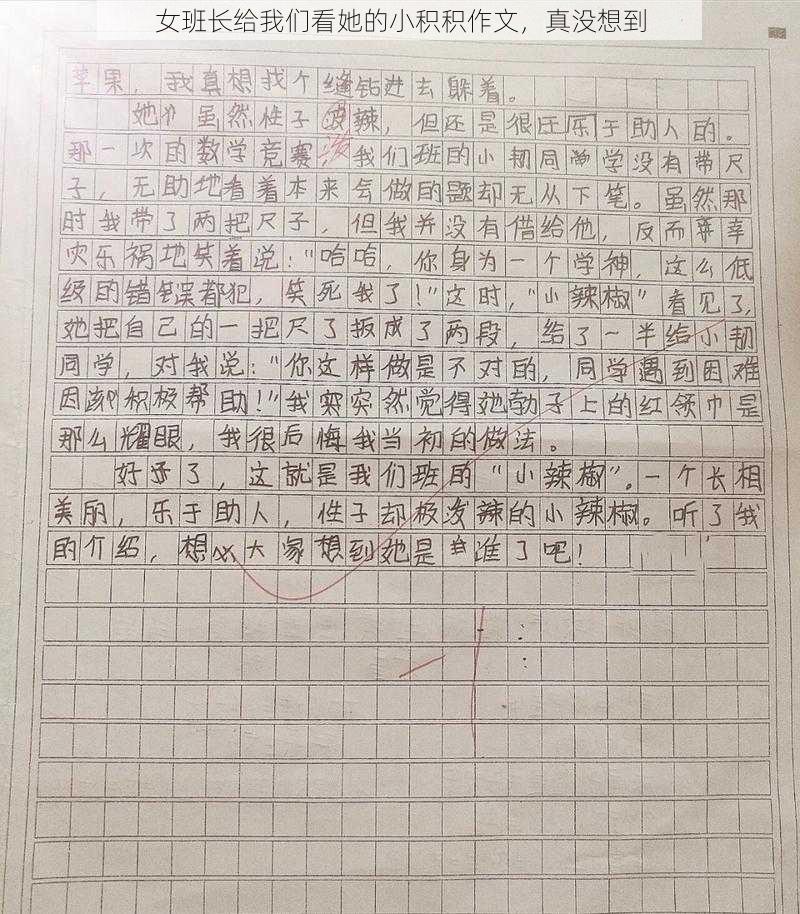 女班长给我们看她的小积积作文，真没想到
苹果，我真想找个缝钻进去躲着。
她虽然性子泼辣，但还是很乐于助人的。
那一次的数学竞赛我们班的小韧同学没有带尺
子，无助地看着本来会做的题却无从下笔。虽然那
时我带了两把尺子，但我并没有借给他，反而幸
灾乐祸地笑着说：“哈哈，你身为一个学神，这么低
级的错误都犯，笑死我了！”这时，“小辣椒”看见了，
她把自己的一把尺了扳成了两段，给了一半给小韧
同学，对我说：“你这样做是不对的，同学遇到困难
因该积极帮助！”我突然觉得她勃子上的红领巾是
那么耀眼，我很后悔我当初的做法。
好了，这就是我们班的“小辣椒”。一个长相
美丽，乐于助人，性子却极泼辣的小辣椒。听了我
的介绍，想必大家想到她是谁了吧！